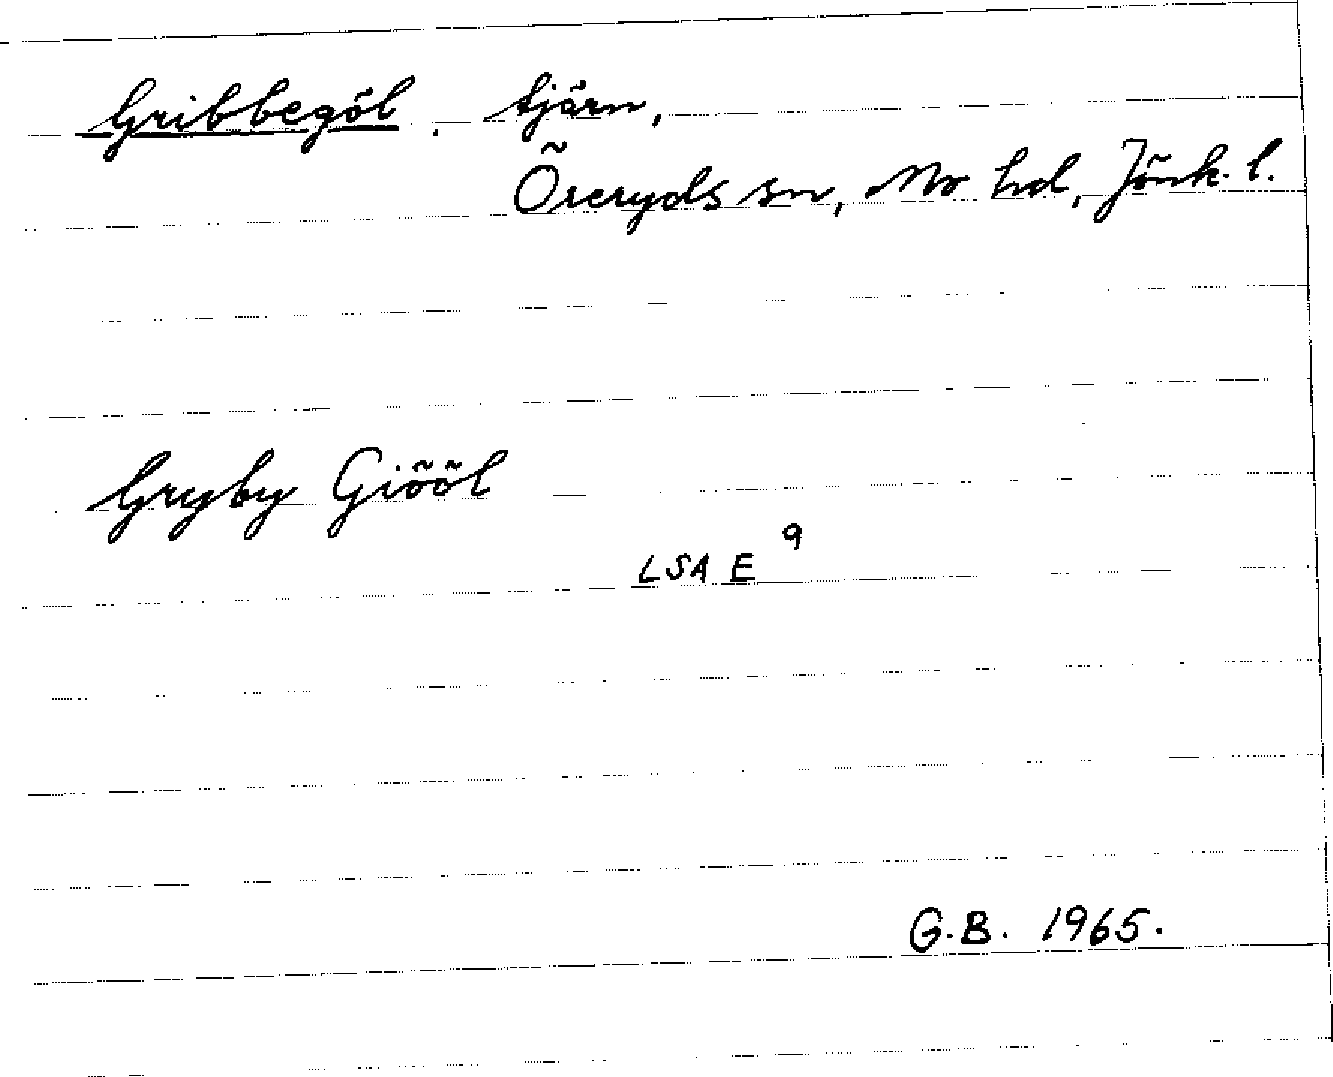 Gribbegöl. tjärn,
Öreryds sn, Mo hd, Jönk. l.
Gryby Giööl
LSA E 9
G.B. 1965.